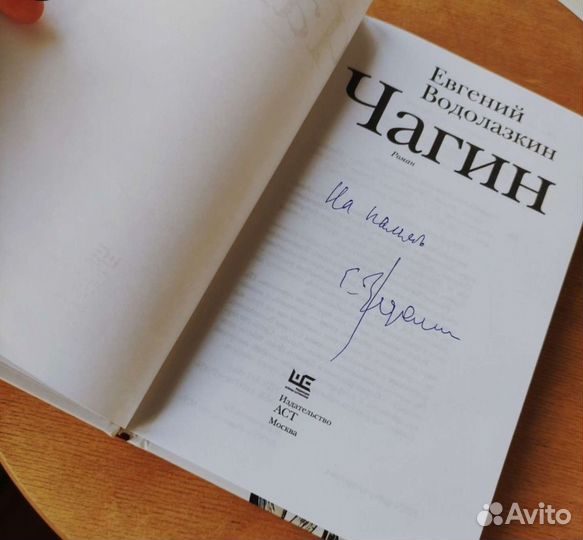 Евгений
Водолазкин
Чагин
Роман
На память
Издательство
АСТ
Москва
Avito